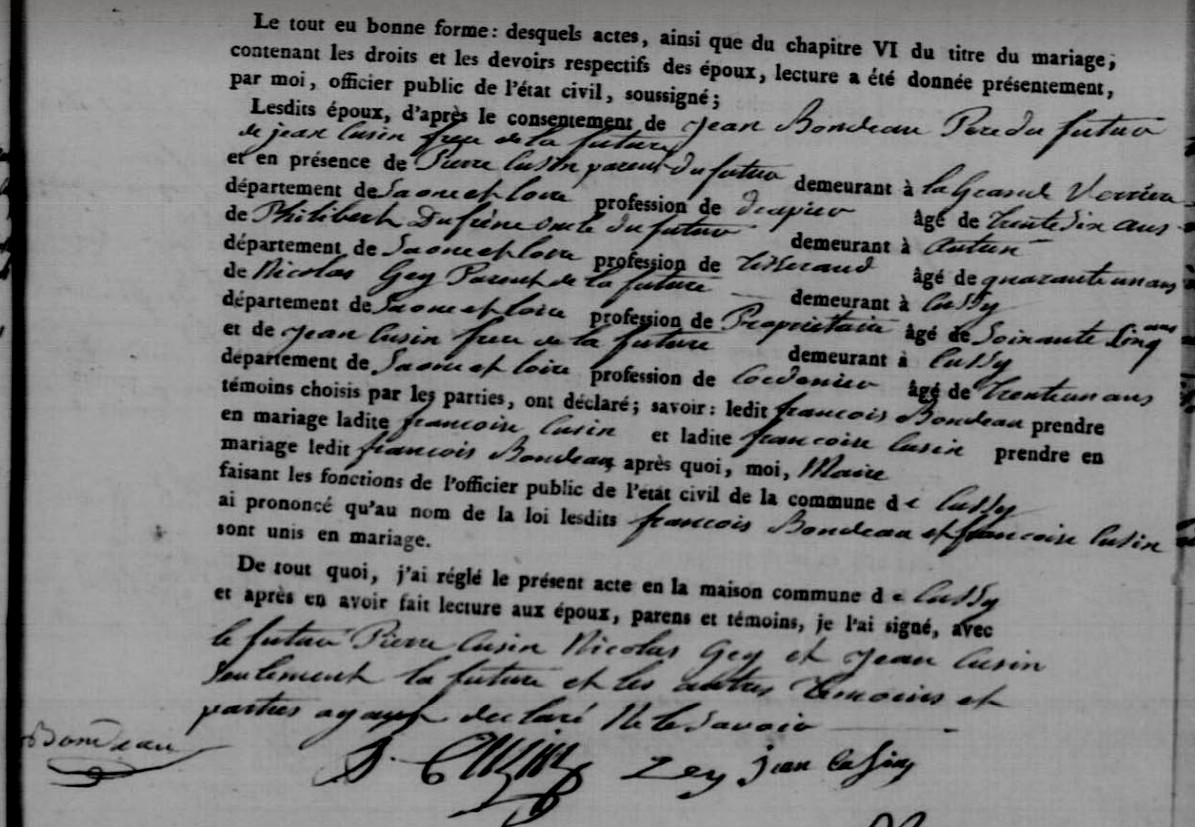 Le tout eu bonne forme: desquels actes, ainsi que du chapitre VI du titre du mariage;
contenant les droits et les devoirs respectifs des époux, lecture a été donnée présentement,
par moi, officier public de l'état civil, soussigné;
Lesdits époux, d'après le consentement de Jean Bondeau Pere du futur
de jean Cusin frere de la future
et en présence de Pierre Cusin parent du futur demeurant à la Grand Verriere
département de Saone et loire profession de drapier âgé de trente six ans
de Philibert Dufrene oncle du futur demeurant à autun
département de Saone et loire profession de tisserand âgé de quarante un ans
de Nicolas Gey Parent de la future demeurant à Cussy
département de Saone et loire profession de Proprietaire âgé de Soixante Cinq ans
et de Jean Cusin frere de la future demeurant à Cussy
département de Saone et loire profession de Cordonier âgé de trente un ans
témoins choisis par les parties, ont déclaré; savoir: ledit francois Bondeau prendre
en mariage ladite francoise Cusin et ladite francoise Cusin prendre en
mariage ledit francois Bondeau après quoi, moi, Maire
faisant les fonctions de l'officier public de l'état civil de la commune de Cussy
ai prononcé qu'au nom de la loi lesdits francois Bondeau et francoise Cusin
sont unis en mariage.
De tout quoi, j'ai réglé le présent acte en la maison commune de Cussy
et après en avoir fait lecture aux époux, parens et témoins, je l'ai signé, avec
le futur Pierre Cusin Nicolas Gey et Jean Cusin
Seulement la future et les autres temoins et
parties ayant declaré Ne le Savoir
Bondeau P. Cuzin Zey jean Cusin